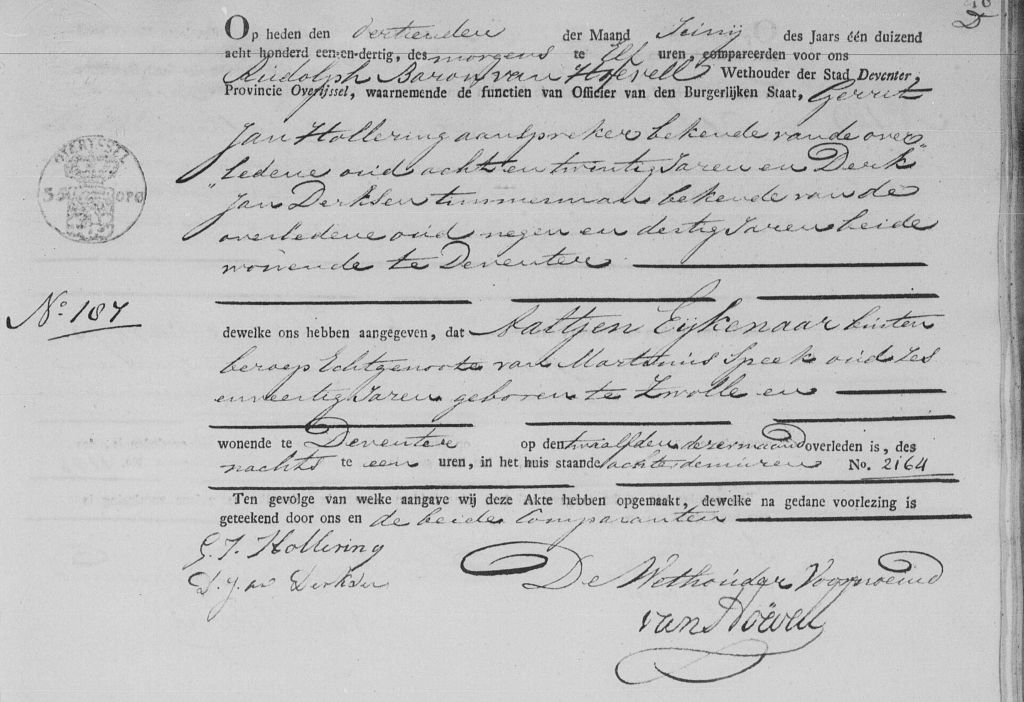 Op heden den dertienden der Maand Junij des Jaars één duizend
acht honderd een-en-dertig, des morgens te Elf uren, compareerden voor ons
Rudolph Baron van Hoevell Wethouder der Stad Deventer,
Provincie Overijssel, waarnemende de functien van Officier van den Burgerlijken Staat, Gerrit
Jan Hollering aanspreker bekende van de over„
„ledene oud acht en twintig Jaren en Derk
Jan Derksen timmerman bekende van de
overledene oud negen en dertig Jaren beide
wonende te Deventer
OVERYSSEL
No. 107
dewelke ons hebben aangegeven, dat Aaltjen Eijkenaar buiten
beroep Echtgenoote van Marthinus Speek oud zes
en veertig Jaren geboren te Zwolle en
wonende te Deventer op den twaalfden dezer maand overleden is, des
nachts te een uren, in het huis staande achter de muren No. 2164
Ten gevolge van welke aangave wij deze Akte hebben opgemaakt, dewelke na gedane voorlezing is
geteekend door ons en de beide Comparanten
G. J. Hollering
D. J. Derksen
De Wethouder Voornoemd
van Hoëvell